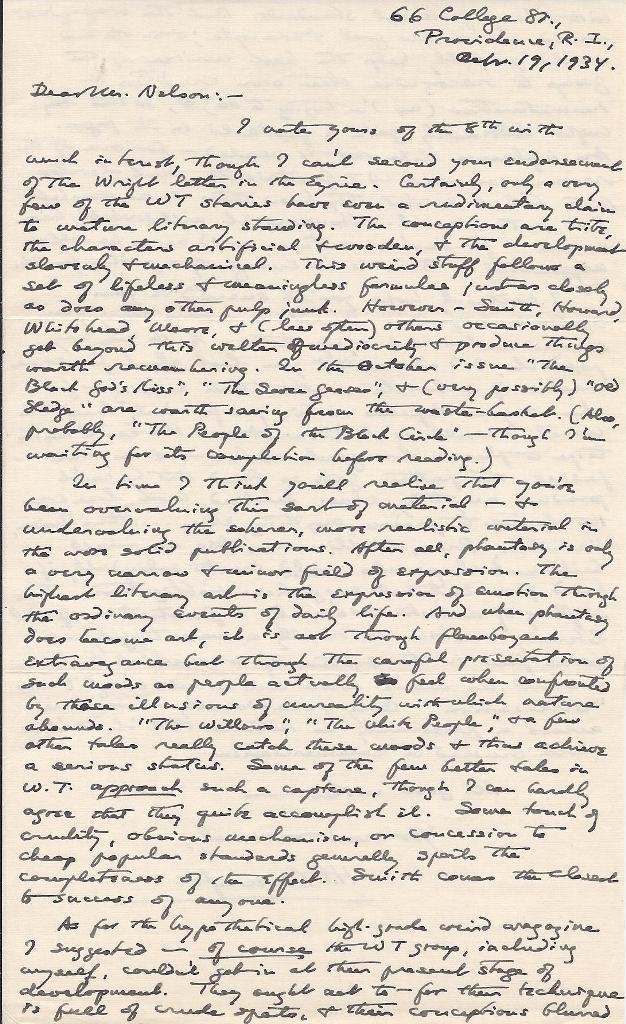 66 College St.,
Providence, R. I.,
Octbr. 19, 1934.
Dear Mr. Nelson:—
I note yours of the 8th with
much interest, though I can't second your endorsement
of the Wright letter in the Eyrie. Certainly, only a very
few of the WT stories have even a rudimentary claim
to mature literary standing. The conceptions are trite,
the characters artificial & wooden, & the development
slovenly & mechanical. This weird stuff follows a
set of lifeless & meaningless formulae just as closely
as does any other pulp junk. However — Smith, Howard,
Whitehead, Moore, & (less often) others occasionally
get beyond this welter of mediocrity & produce things
worth remembering. In the October issue "The
Black God's Kiss", "The Seven Geases", & (very possibly) "Old
Sledge" are worth saving from the waste-basket. (Also,
probably, "The People of the Black Circle" — though I'm
waiting for its completion before reading.)
In time I think you'll realise that you've
been overvaluing this sort of material — &
undervaluing the soberer, more realistic material in
the more solid publications. After all, phantasy is only
a very narrow & minor field of expression. The
highest literary art is the expression of emotion through
the ordinary events of daily life. And when phantasy
does become art, it is not through flamboyant
extravagance but through the careful presentation of
such moods as people actually feel when confronted
by those illusions of unreality with which nature
abounds. "The Willows", "The White People", & a few
other tales really catch these moods & thus achieve
a serious status. Some of the few better tales in
W.T. approach such a capture, though I can hardly
agree that they quite accomplish it. Some touch of
crudity, obvious mechanism, or concession to
cheap popular standards generally spoils the
completeness of the effect. Smith comes the closest
to success of anyone.
As for the hypothetical high-grade weird magazine
I suggested — of course the WT group, including
myself, couldn't get in at their present stage of
development. They ought not to — for their technique
is full of crude spots, & their conceptions blurred